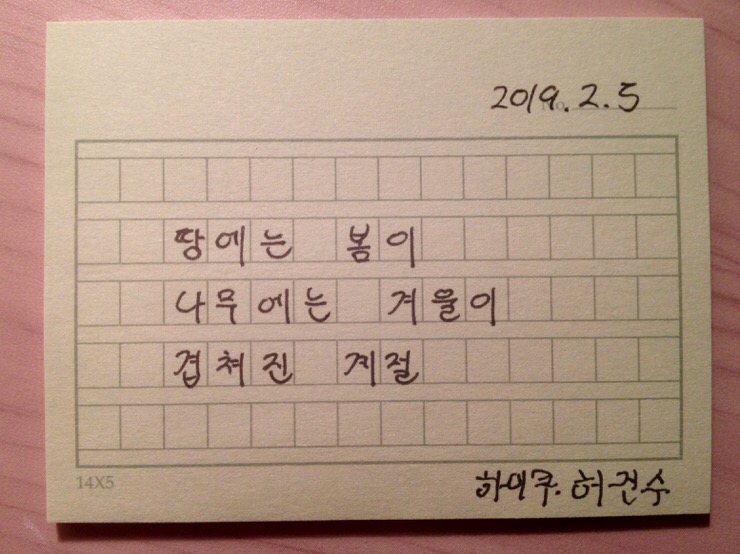 2019.2.5
땅에는 봄이
나무에는 겨울이
겹쳐진 계절
14X5
하이쿠. 허건수